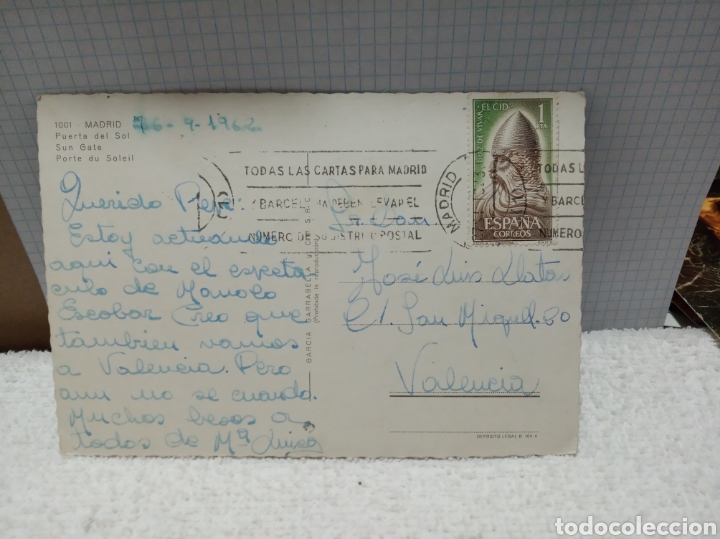 1001 - MADRID
Puerta del Sol
Sun Gate
Porte du Soleil
-9-1962
TODAS LAS CARTAS PARA MADRID
Y BARCELONA DEBEN LLEVAR EL
NUMERO DE SU DISTRITO POSTAL
MADRID
TODAS LA
Y BARCE
NUMERO
EL CID
1
PTA
ESPAÑA
CORREOS
Querido
Estoy actuando
aqui con el especta
culo de Manolo
Escobar Creo que
tambien vamos
a Valencia. Pero
aun no se cuando.
Muchos besos a
todos de Mª Luisa
GARCIA GARRABELLA Y CIA
José Luis Llatas
C/. San Miguel-20
Valencia
DEPOSITO LEGAL B.
todocoleccion.net